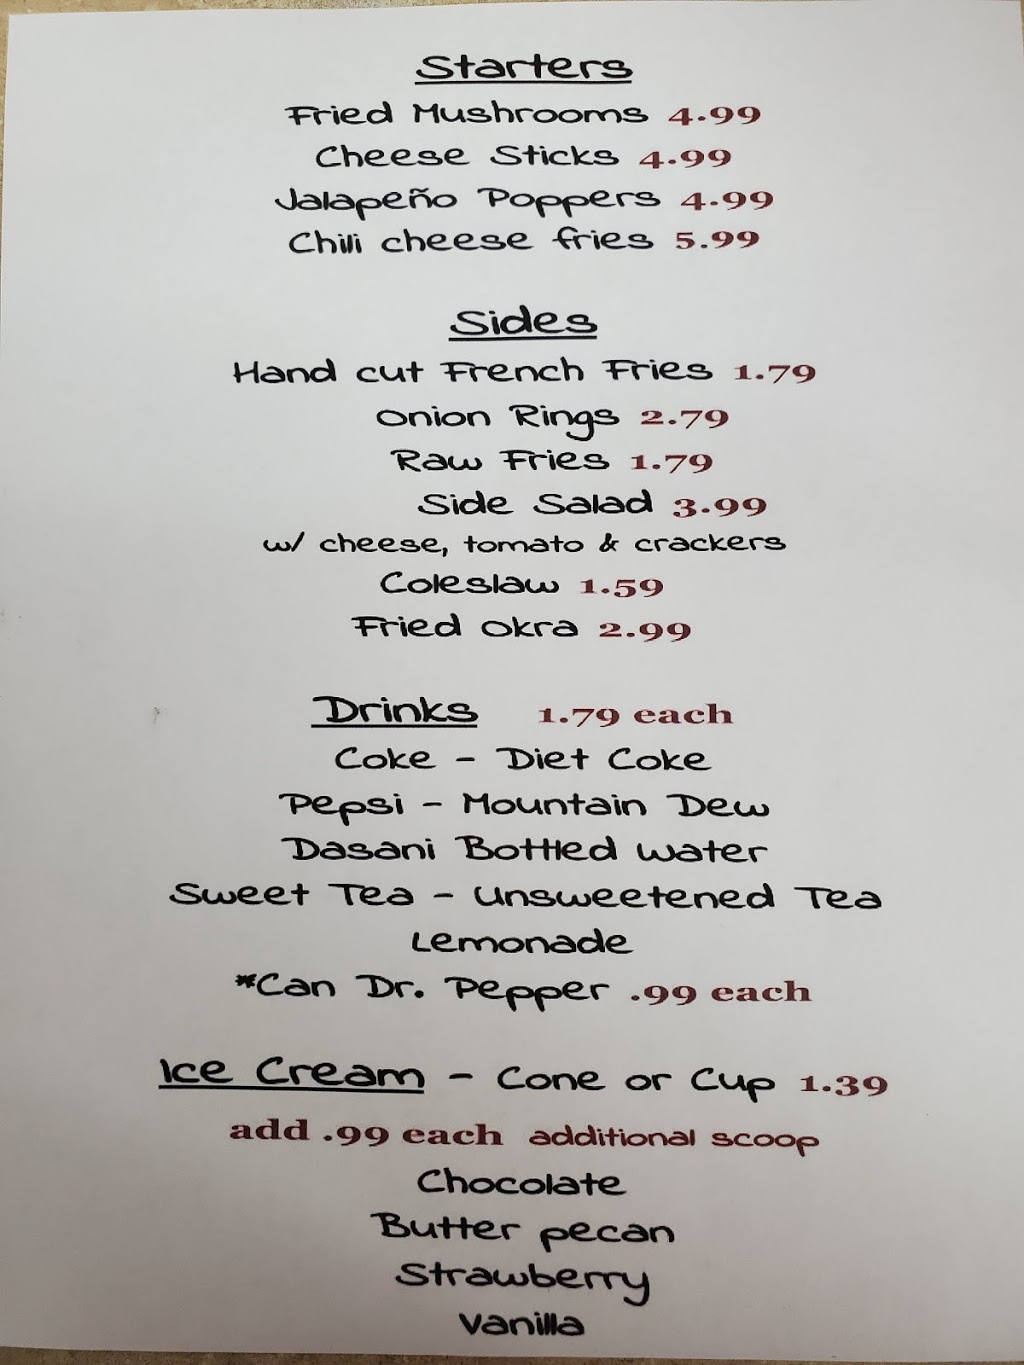 Starters
Fried Mushrooms 4.99
Cheese Sticks 4.99
Jalapeño Poppers 4.99
Chili cheese fries 5.99
Sides
Hand cut French Fries 1.79
Onion Rings 2.79
Raw Fries 1.79
Side Salad 3.99
w/ cheese, tomato & crackers
Coleslaw 1.59
Fried Okra 2.99
Drinks 1.79 each
Coke - Diet Coke
Pepsi - Mountain Dew
Dasani Bottled Water
Sweet Tea - Unsweetened Tea
Lemonade
*Can Dr. Pepper .99 each
Ice Cream - Cone or Cup 1.39
add .99 each additional scoop
Chocolate
Butter pecan
Strawberry
Vanilla